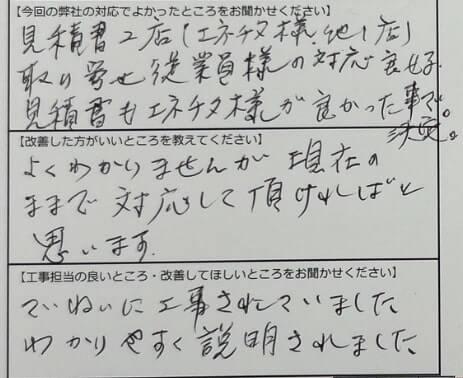 【今回の弊社の対応でよかったところをお聞かせください】
見積書2店(エネチタ様、他1店)
取り寄せ従業員様の対応良せ子
見積書もエネチタ様が良かった事で
決定。
【改善した方がいいところを教えてください】
よくわかりませんが現在の
ままで対応して頂ければと
思います。
【工事担当の良いところ・改善してほしいところをお聞かせください】
ていねいに工事されていました
わかりやすく説明されました